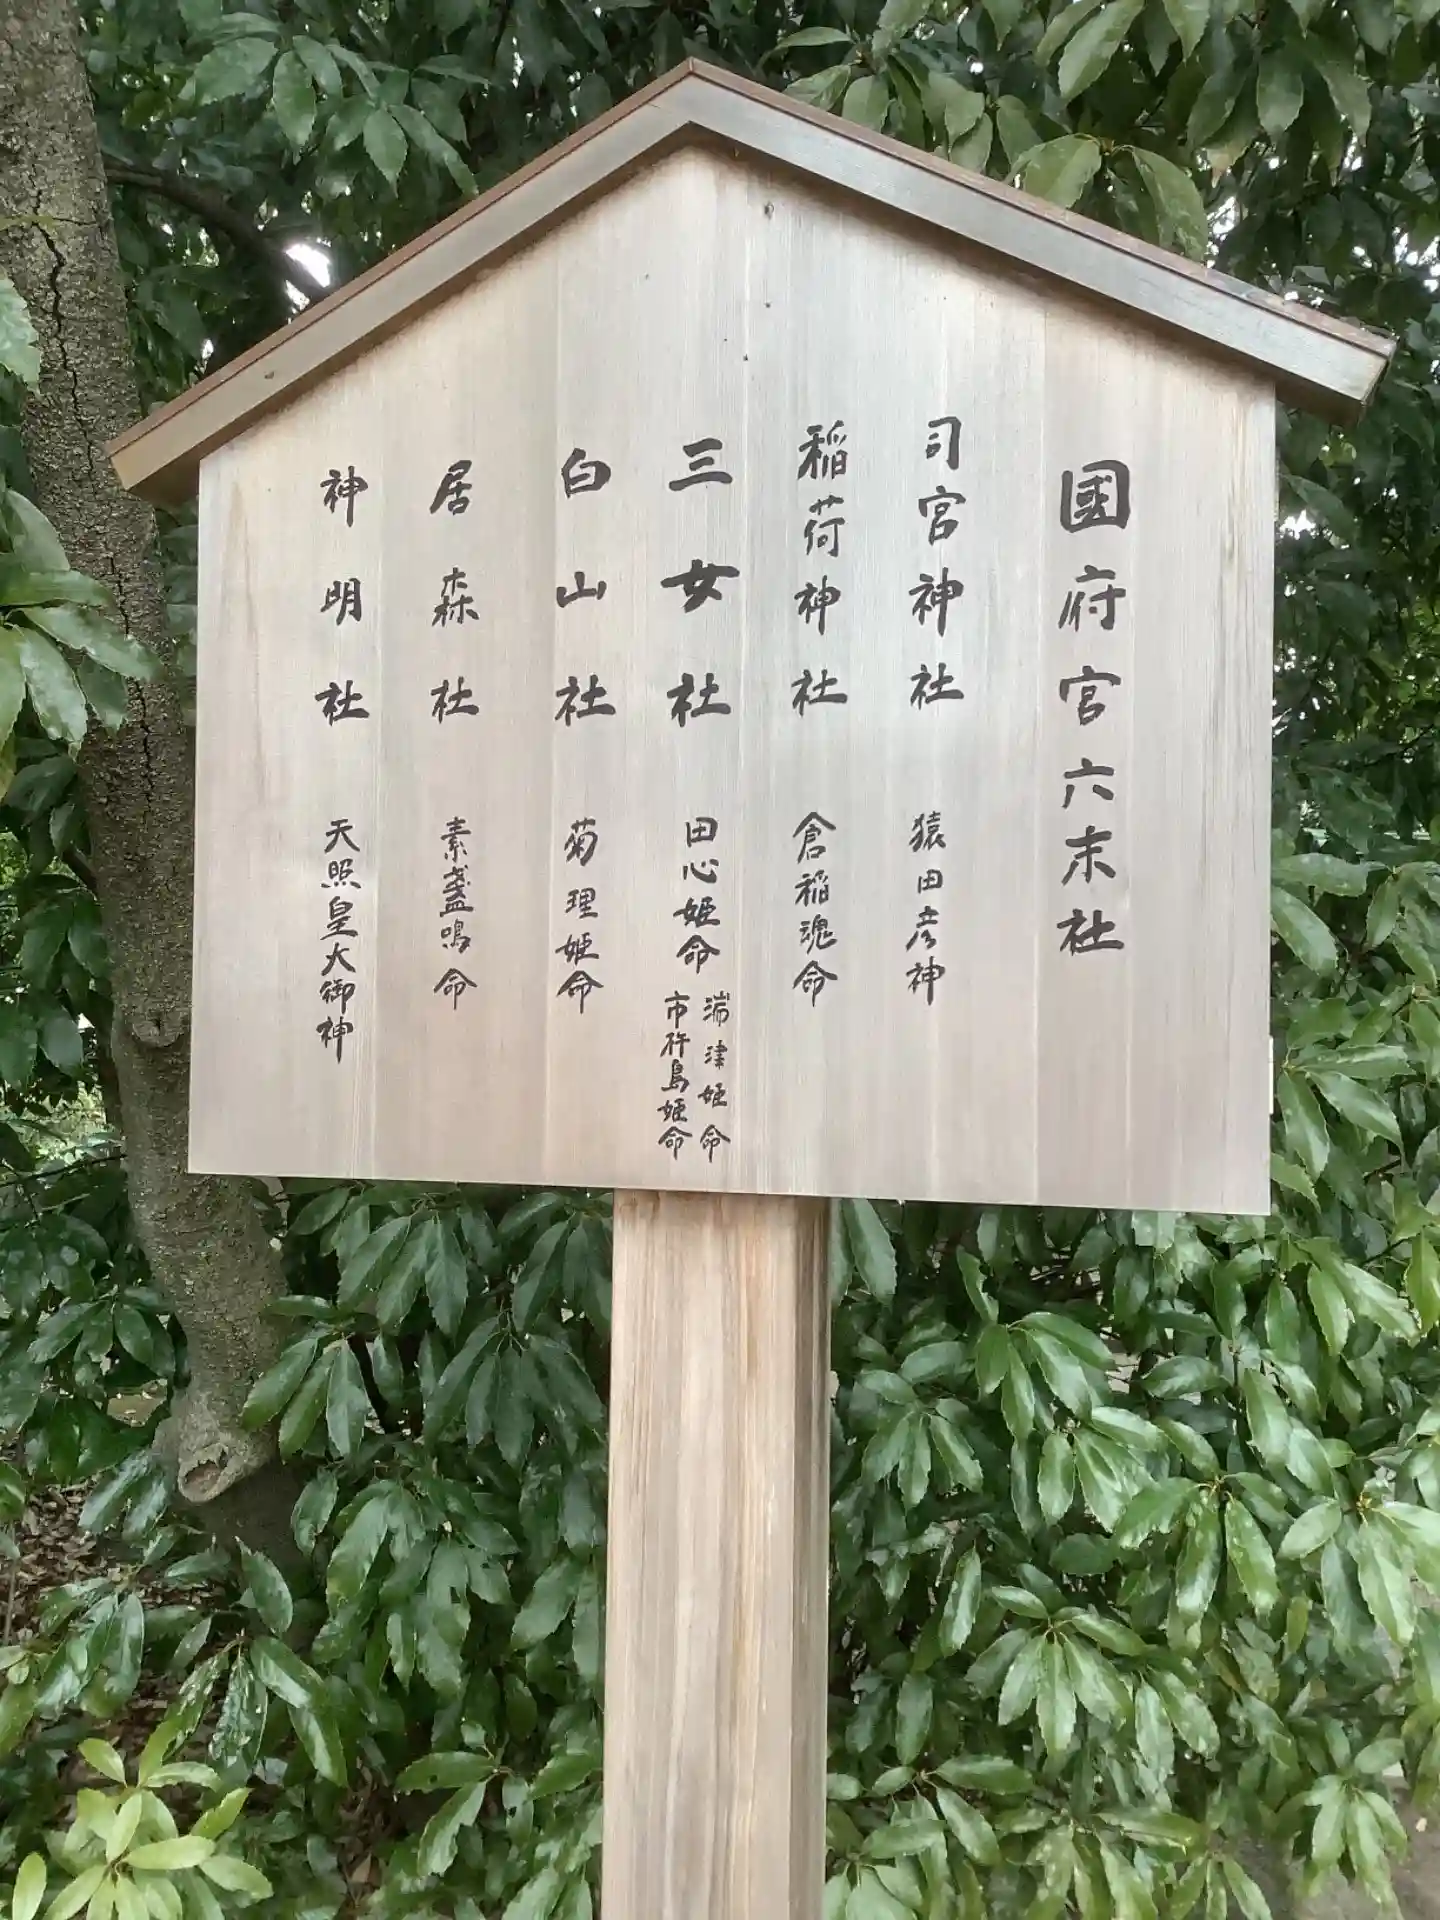 國府宮六末社
司宮神社 猿田彦神
稲荷神社 倉稲魂命
三女社 田心姫命 湍津姫命 市杵島姫命
白山社 菊理姫命
居森社 素盞鳴命
神明社 天照皇大御神